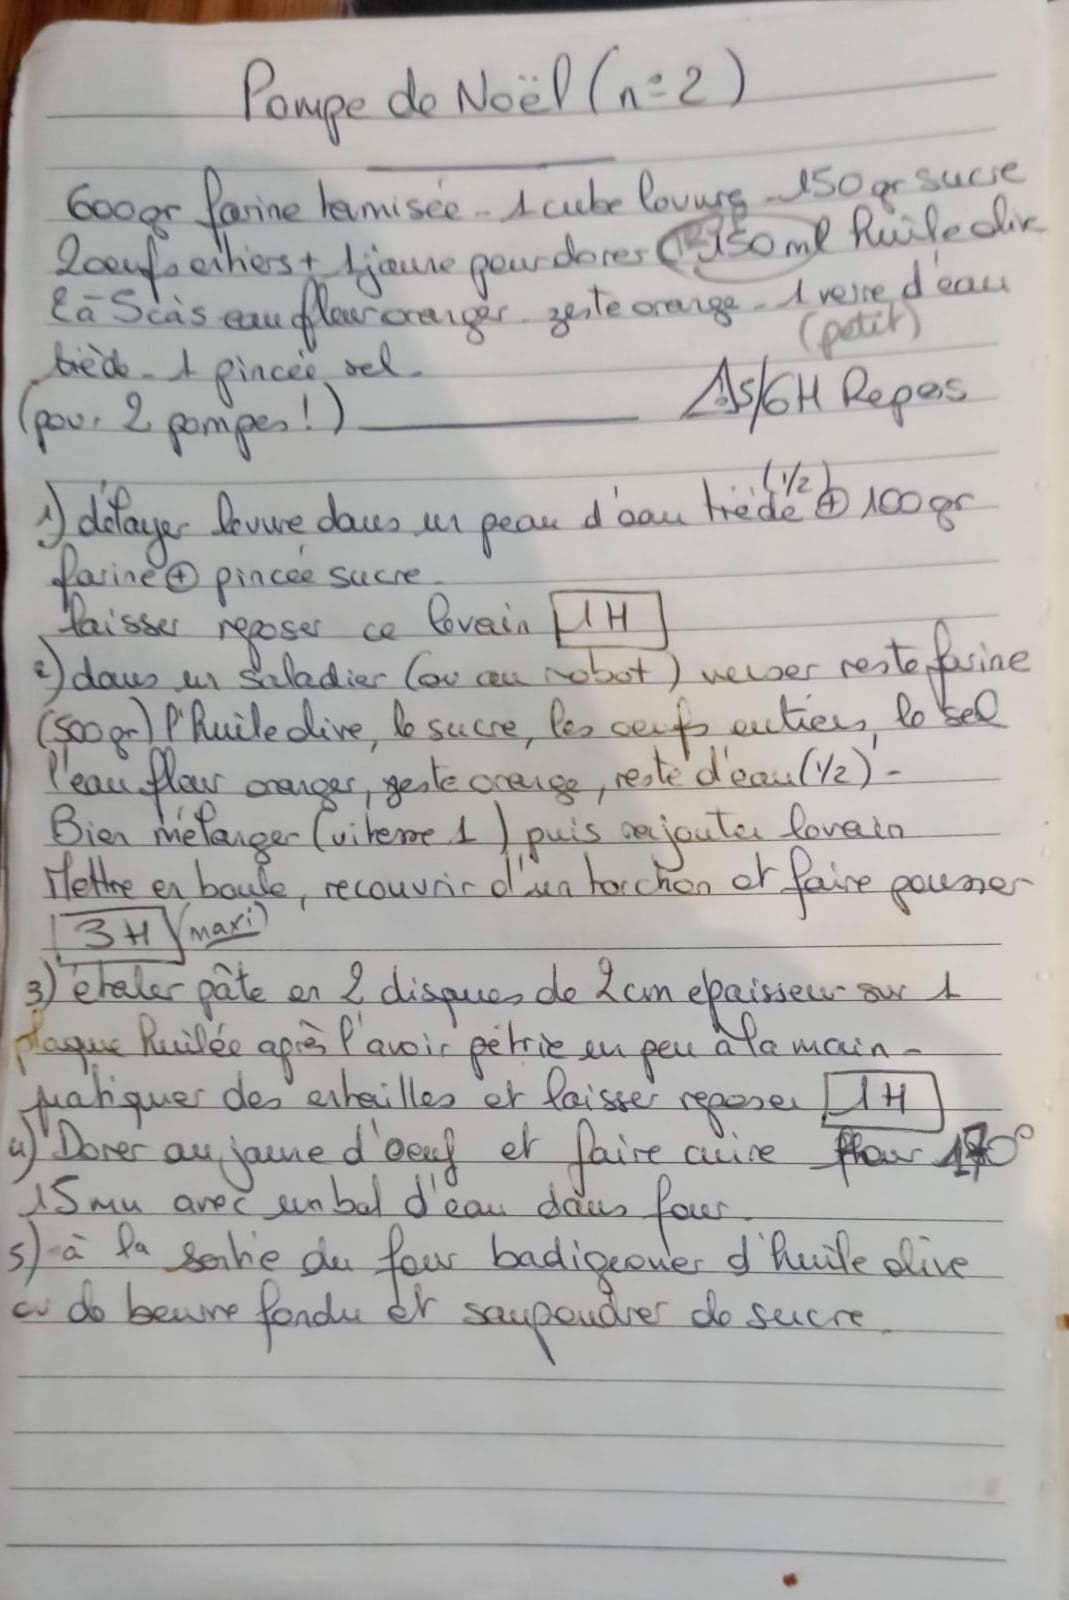 Pompe de Noël (n=2)
600gr farine tamisée - 1 cube levure - 150gr sucre
2 oeufs entiers + 1 jaune pour dorer 150 ml huile olive
à 5 càs eau fleur oranger - zeste orange - 1 verre d'eau
(petit)
tiède - 1 pincée sel -
(pour 2 pompes !) 5/6H Repos
1) délayer levure dans un peau d'eau tiède (1/2) + 100gr
farine + pincée sucre.
laisser reposer ce levain 1H
2) dans un saladier (ou au robot) verser reste farine
(500gr) l'huile olive, le sucre, les oeufs entiers, le sel
l'eau fleur oranger, zeste orange, reste d'eau (1/2) -
Bien mélanger (vitesse 1) puis rajouter levain
Mettre en boule, recouvrir d'un torchon et faire pousser
3H (maxi)
3) étaler pâte en 2 disques de 2cm epaisseur sur 1
plaque huilée après l'avoir pétrie un peu à la main -
pratiquer des entailles et laisser reposer 1H
4) Dorer au jaune d'oeuf et faire cuire four 170°
15 mn avec un bol d'eau dans four.
5) à la sortie du four badigeonner d'huile olive
ou de beurre fondu et saupoudrer de sucre.